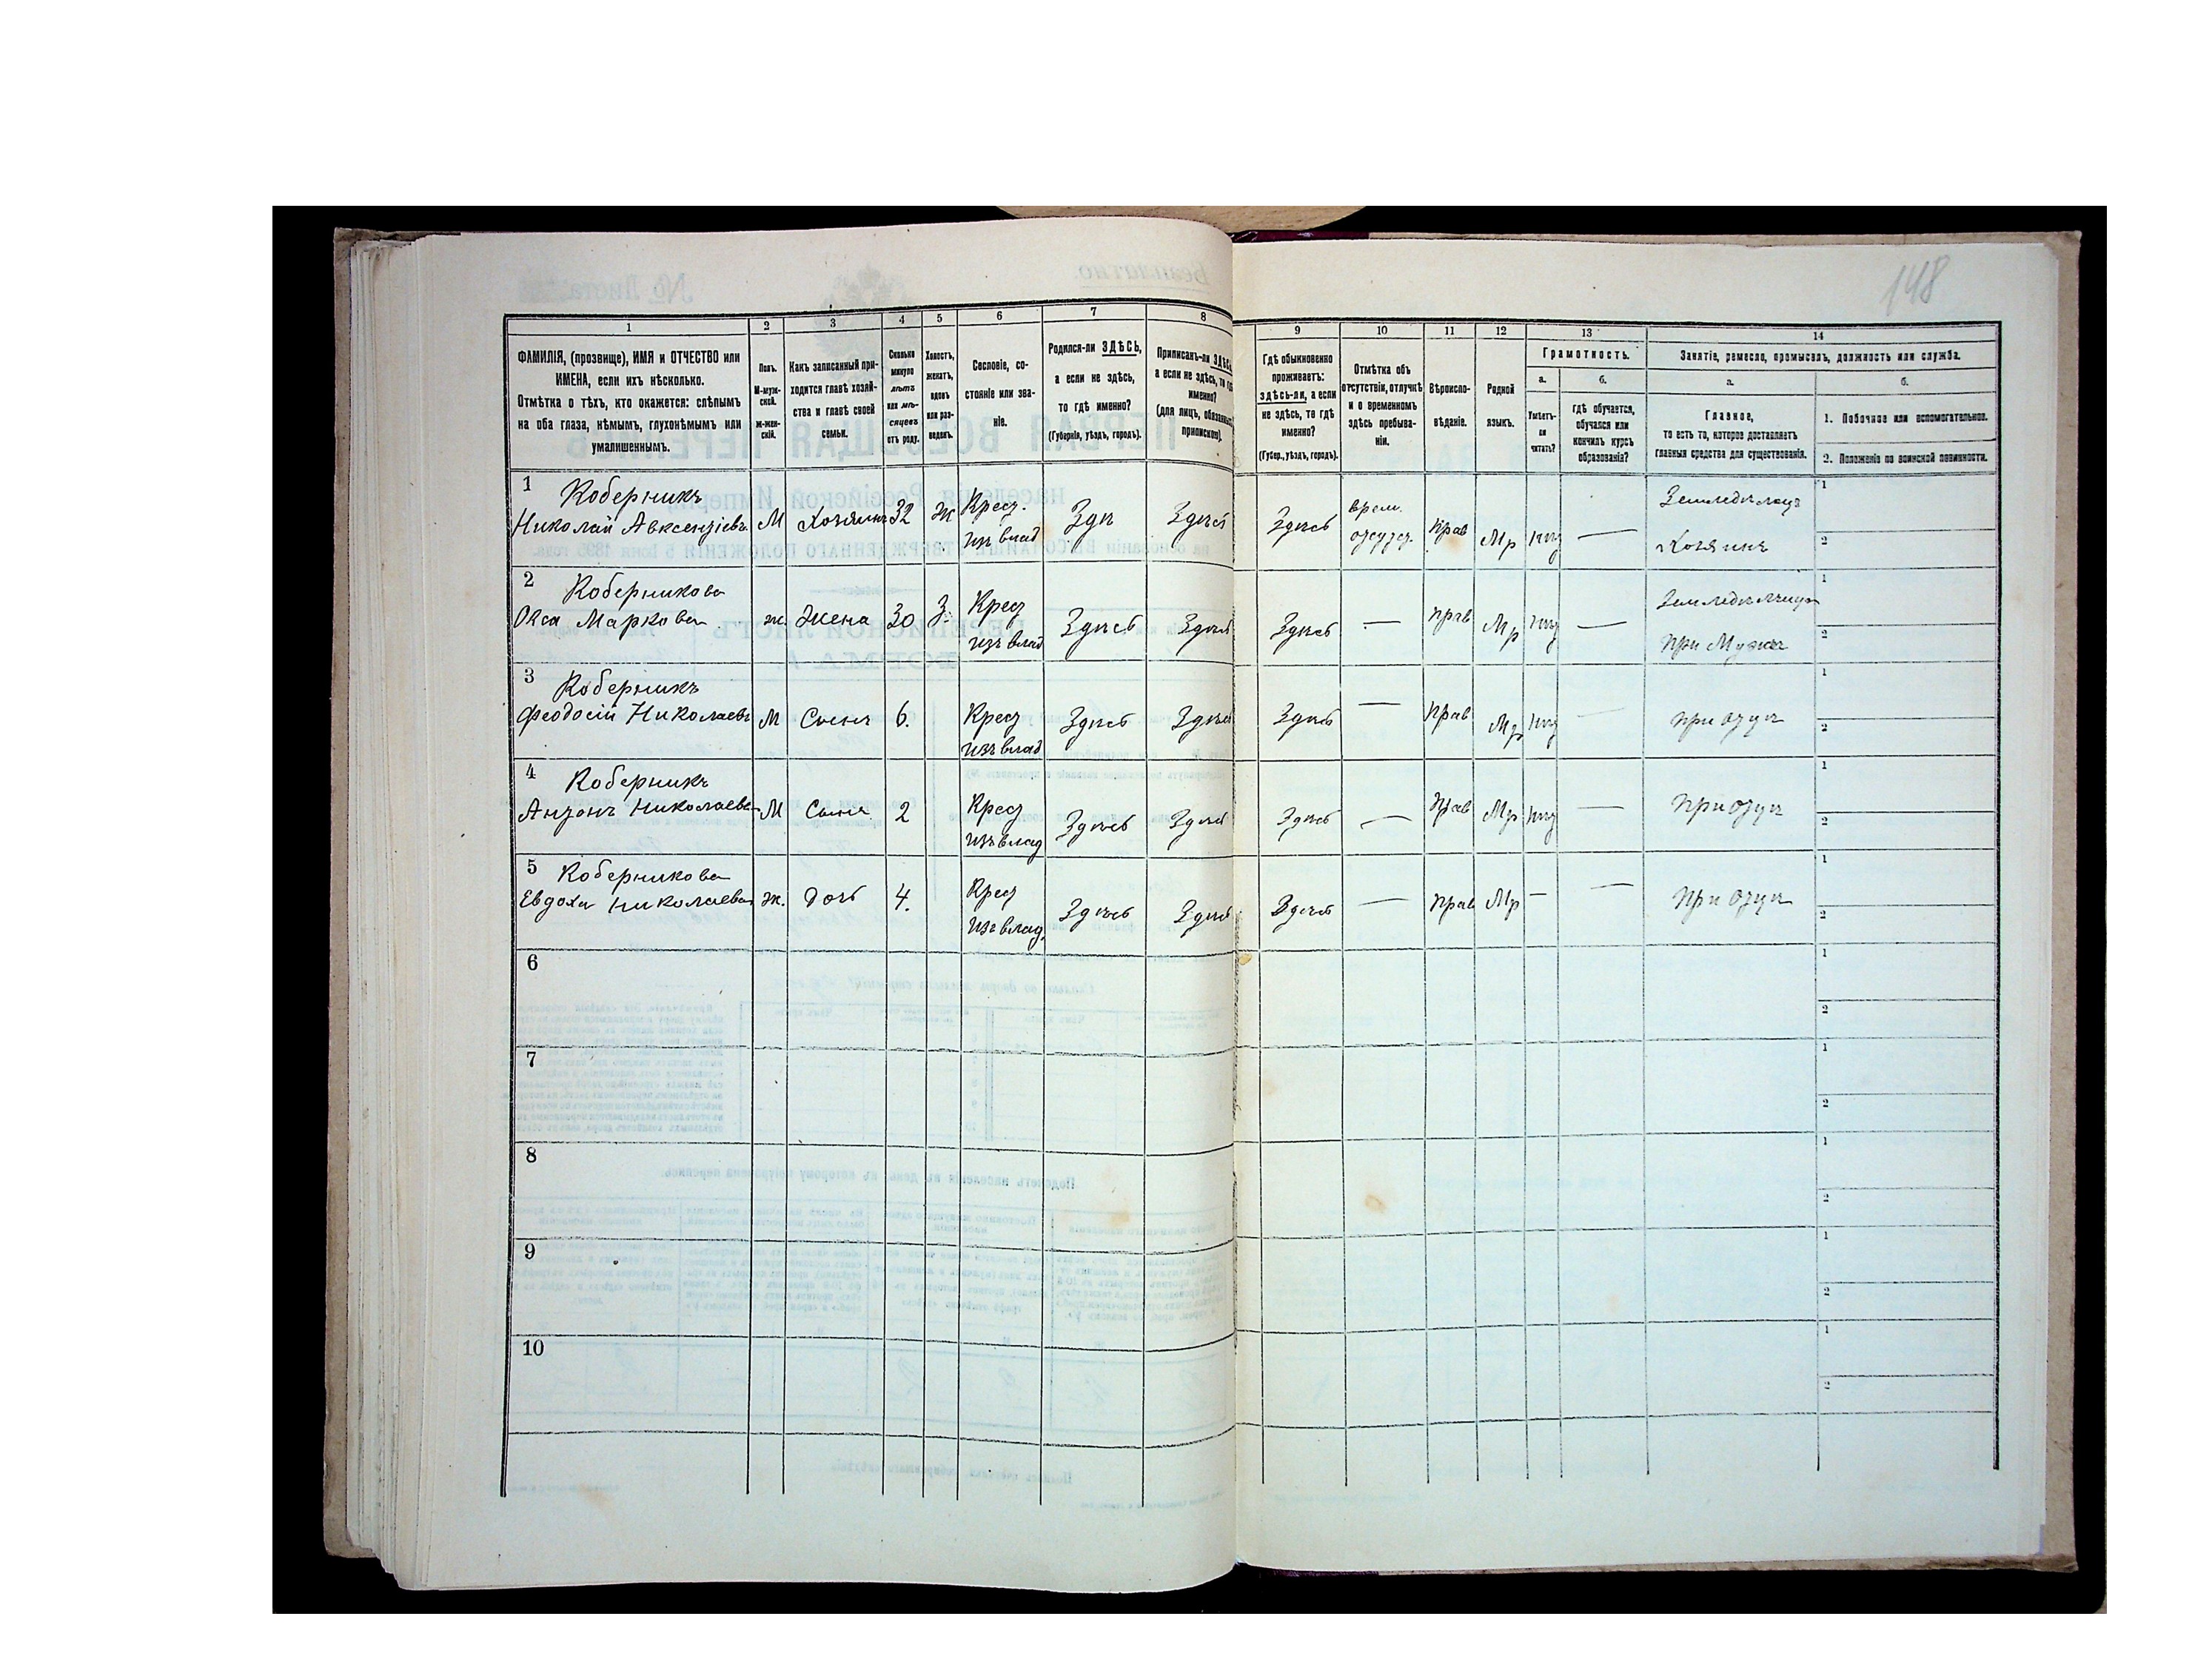 148
1 2 3 4 5 6 7 8 9 10 11 12 13 14
ФАМИЛІЯ, (прозвище), ИМЯ и ОТЧЕСТВО или
ИМЕНА, если ихъ нѣсколько.
Отмѣтка о тѣхъ, кто окажется: слѣпымъ
на оба глаза, нѣмымъ, глухонѣмымъ или
умалишеннымъ.
Полъ.
М-муж-
ской.
ж-жен-
скій.
Какъ записанный при-
ходится главѣ хозяй-
ства и главѣ своей
семьи.
Сколько
минуло
лѣтъ
или мѣ-
сяцевъ
отъ роду.
Холостъ,
женатъ,
вдовъ
или раз-
веденъ.
Сословіе, со-
стояніе или зва-
ніе.
Родился-ли ЗДѢСЬ,
а если не здѣсь,
то гдѣ именно?
(Губернія, уѣздъ, городъ).
Приписанъ-ли ЗДѢСЬ,
а если не здѣсь, то гдѣ
именно?
(для лицъ, обязанныхъ
припискою).
Гдѣ обыкновенно
проживаетъ:
здѣсь-ли, а если
не здѣсь, то гдѣ
именно?
(Губер., уѣздъ, городъ).
Отмѣтка объ
отсутствіи, отлучкѣ
и о временномъ
здѣсь пребыва-
ніи.
Вѣроиспо-
вѣданіе.
Родной
языкъ.
Грамотность.
а.
Умѣетъ-
ли
читать?
б.
гдѣ обучается,
обучался или
кончилъ курсъ
образованія?
Занятіе, ремесло, промыселъ, должность или служба.
а.
Главное,
то есть то, которое доставляетъ
главныя средства для существованія.
б.
1. Побочное или вспомогательное.
2. Положеніе по воинской повинности.
1 Коберникъ
Николай Авксентіевъ М Хозяинъ 32 Ж Крест. изъ влад Здѣ Здѣсь Здѣсь врем. отсутст. прав Мр нѣт — Земледѣлецъ Хозяинъ 1 2
2 Коберникова
Окса Маркова ж. Жена 30 З. Крест изъ влад Здѣсь Здѣсь Здѣсь — прав Мр нѣт — Земледѣлица при Мужѣ 1 2
3 Коберникъ
Феодосій Николаевъ М Сынъ 6. Крест изъ влад Здѣсь Здѣсь Здѣсь — прав Мр нѣт — при отцѣ 1 2
4 Коберникъ
Антонъ Николаевъ М Сынъ 2 Крест изъ влад Здѣсь Здѣсь Здѣсь — прав Мр нѣт — при отцѣ 1 2
5 Коберникова
Евдоха Николаева ж. дочь 4. Крест изъ влад. Здѣсь Здѣсь Здѣсь — прав Мр — — при отцѣ 1 2
6 1 2
7 1 2
8 1 2
9 1 2
10 1 2